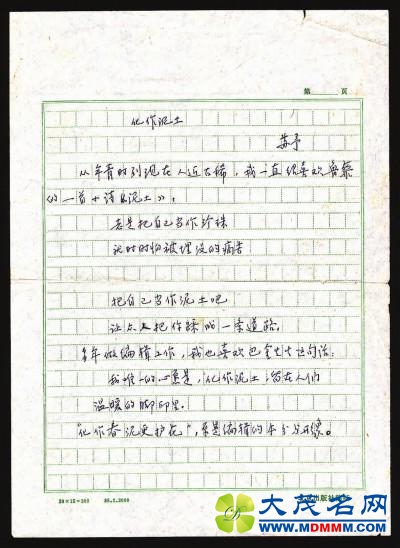 第　　页
化作泥土
苏予
从年青时到现在人近古稀，我一直很喜欢鲁藜
的一首小诗《泥土》：
老是把自己当作珍珠
就时时怕被埋没的痛苦
把自己当作泥土吧
让众人把你踩成一条道路。
多年做编辑工作，我也喜欢巴金的这句话：
我唯一的心愿是：化作泥土，留在人们
温暖的脚印里。
“化作春泥更护花”，
20×15=300
大茂名网
WWW.MDMMM.COM